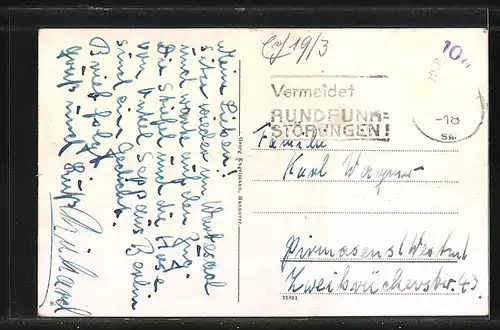 Meine Lieben!
Sitze wieder im Wartesaal
und warte auf den Zug.
Die Stiefel und die Hose
von Onkel Sepp aus Berlin
sind ein Gedicht.
Brief folgt.
Gruß und Kuß
Richard
Georg Engelmann, Hannover.
35891
19/3
10
Vermeidet
RUNDFUNK=
STÖRUNGEN!
-18
Familie
Karl Wagner
Pirmasens / Westm.
Zweibrückerstr. 43